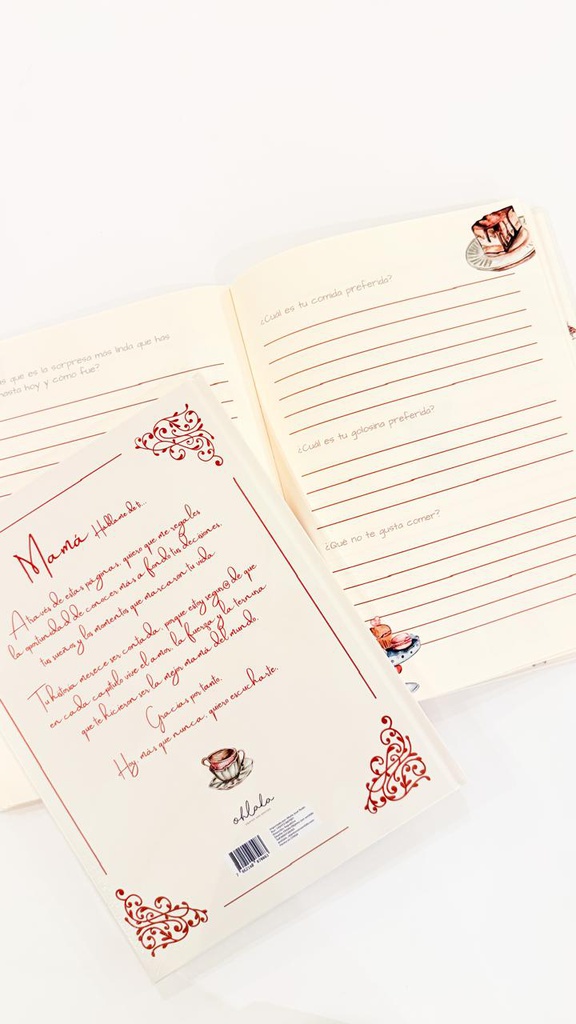 que es la sorpresa más linda que has
hasta hoy y cómo fue?
¿Cuál es tu comida preferida?
¿Cuál es tu golosina preferida?
¿Qué no te gusta comer?
Mamá Hablame de ti...
A través de estas páginas, quiero que me regales
la oportunidad de conocer más a fondo tus decisiones,
tus sueños y los momentos que marcaron tu vida.
Tu historia merece ser contada, porque estoy segur@ de que
en cada capítulo vive el amor, la fuerza y la ternura
que te hicieron ser la mejor mamá del mundo.
Gracias por tanto.
Hoy, más que nunca, quiero escucharte.
ohlala